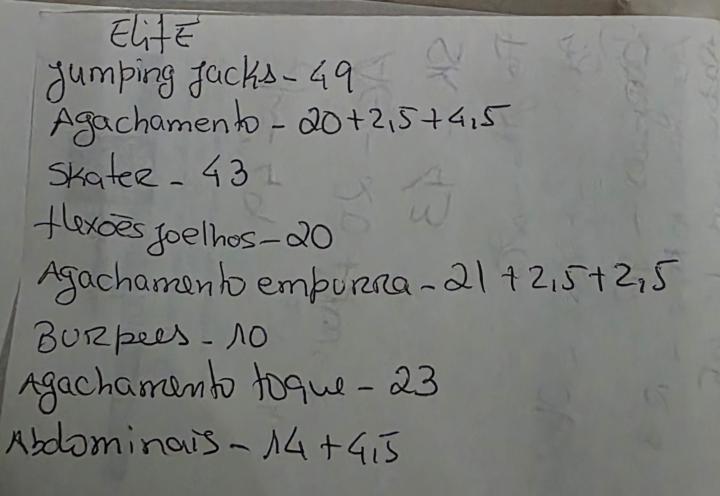 Elite
Jumping Jacks - 49
Agachamento - 20+2,5+4,5
Skater - 43
flexões joelhos - 20
Agachamento empurra - 21 + 2,5+2,5
Burpees - 10
Agachamento toque - 23
Abdominais - 14 + 4,5